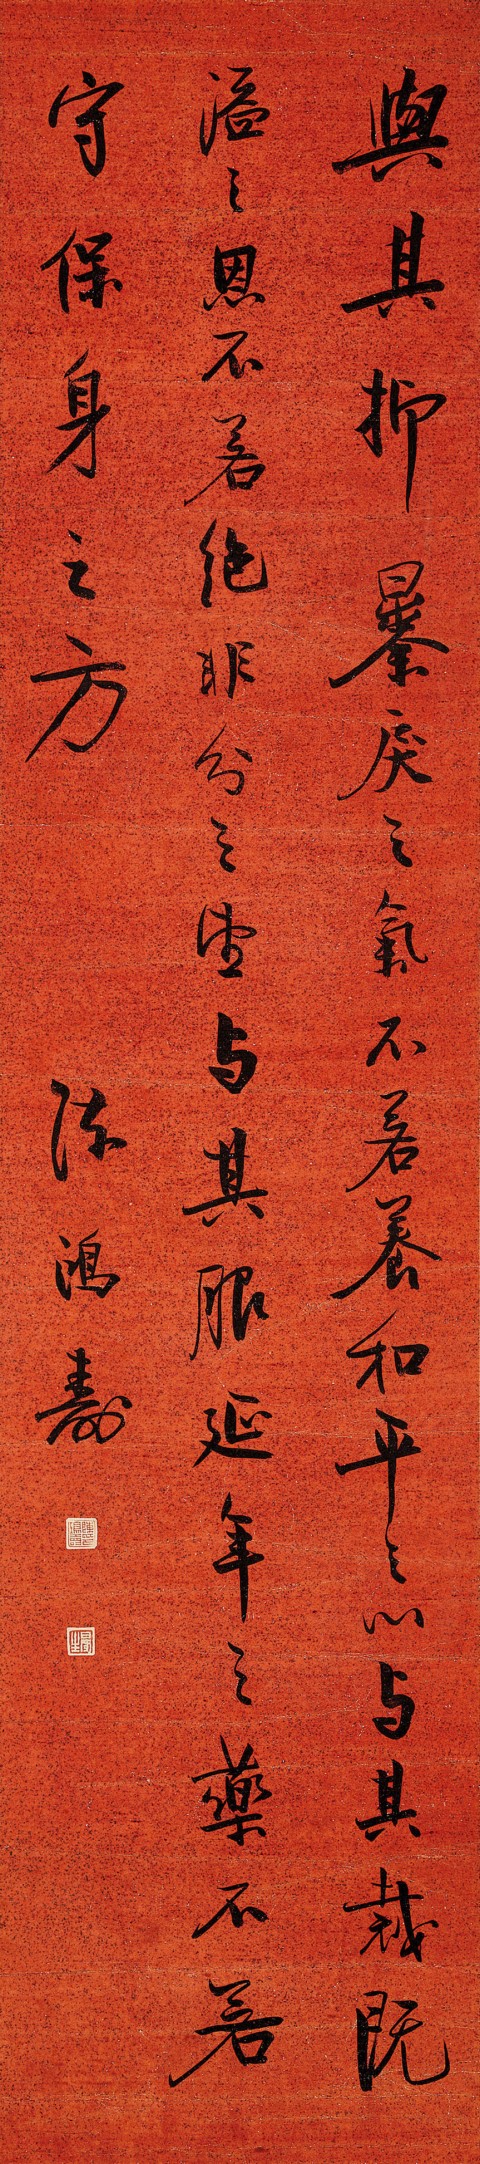 與其抑暴戾之氣不若養和平之心与其裁既
溢之恩不若絶非分之望与其服延年之藥不若
守保身之方
陳鴻壽